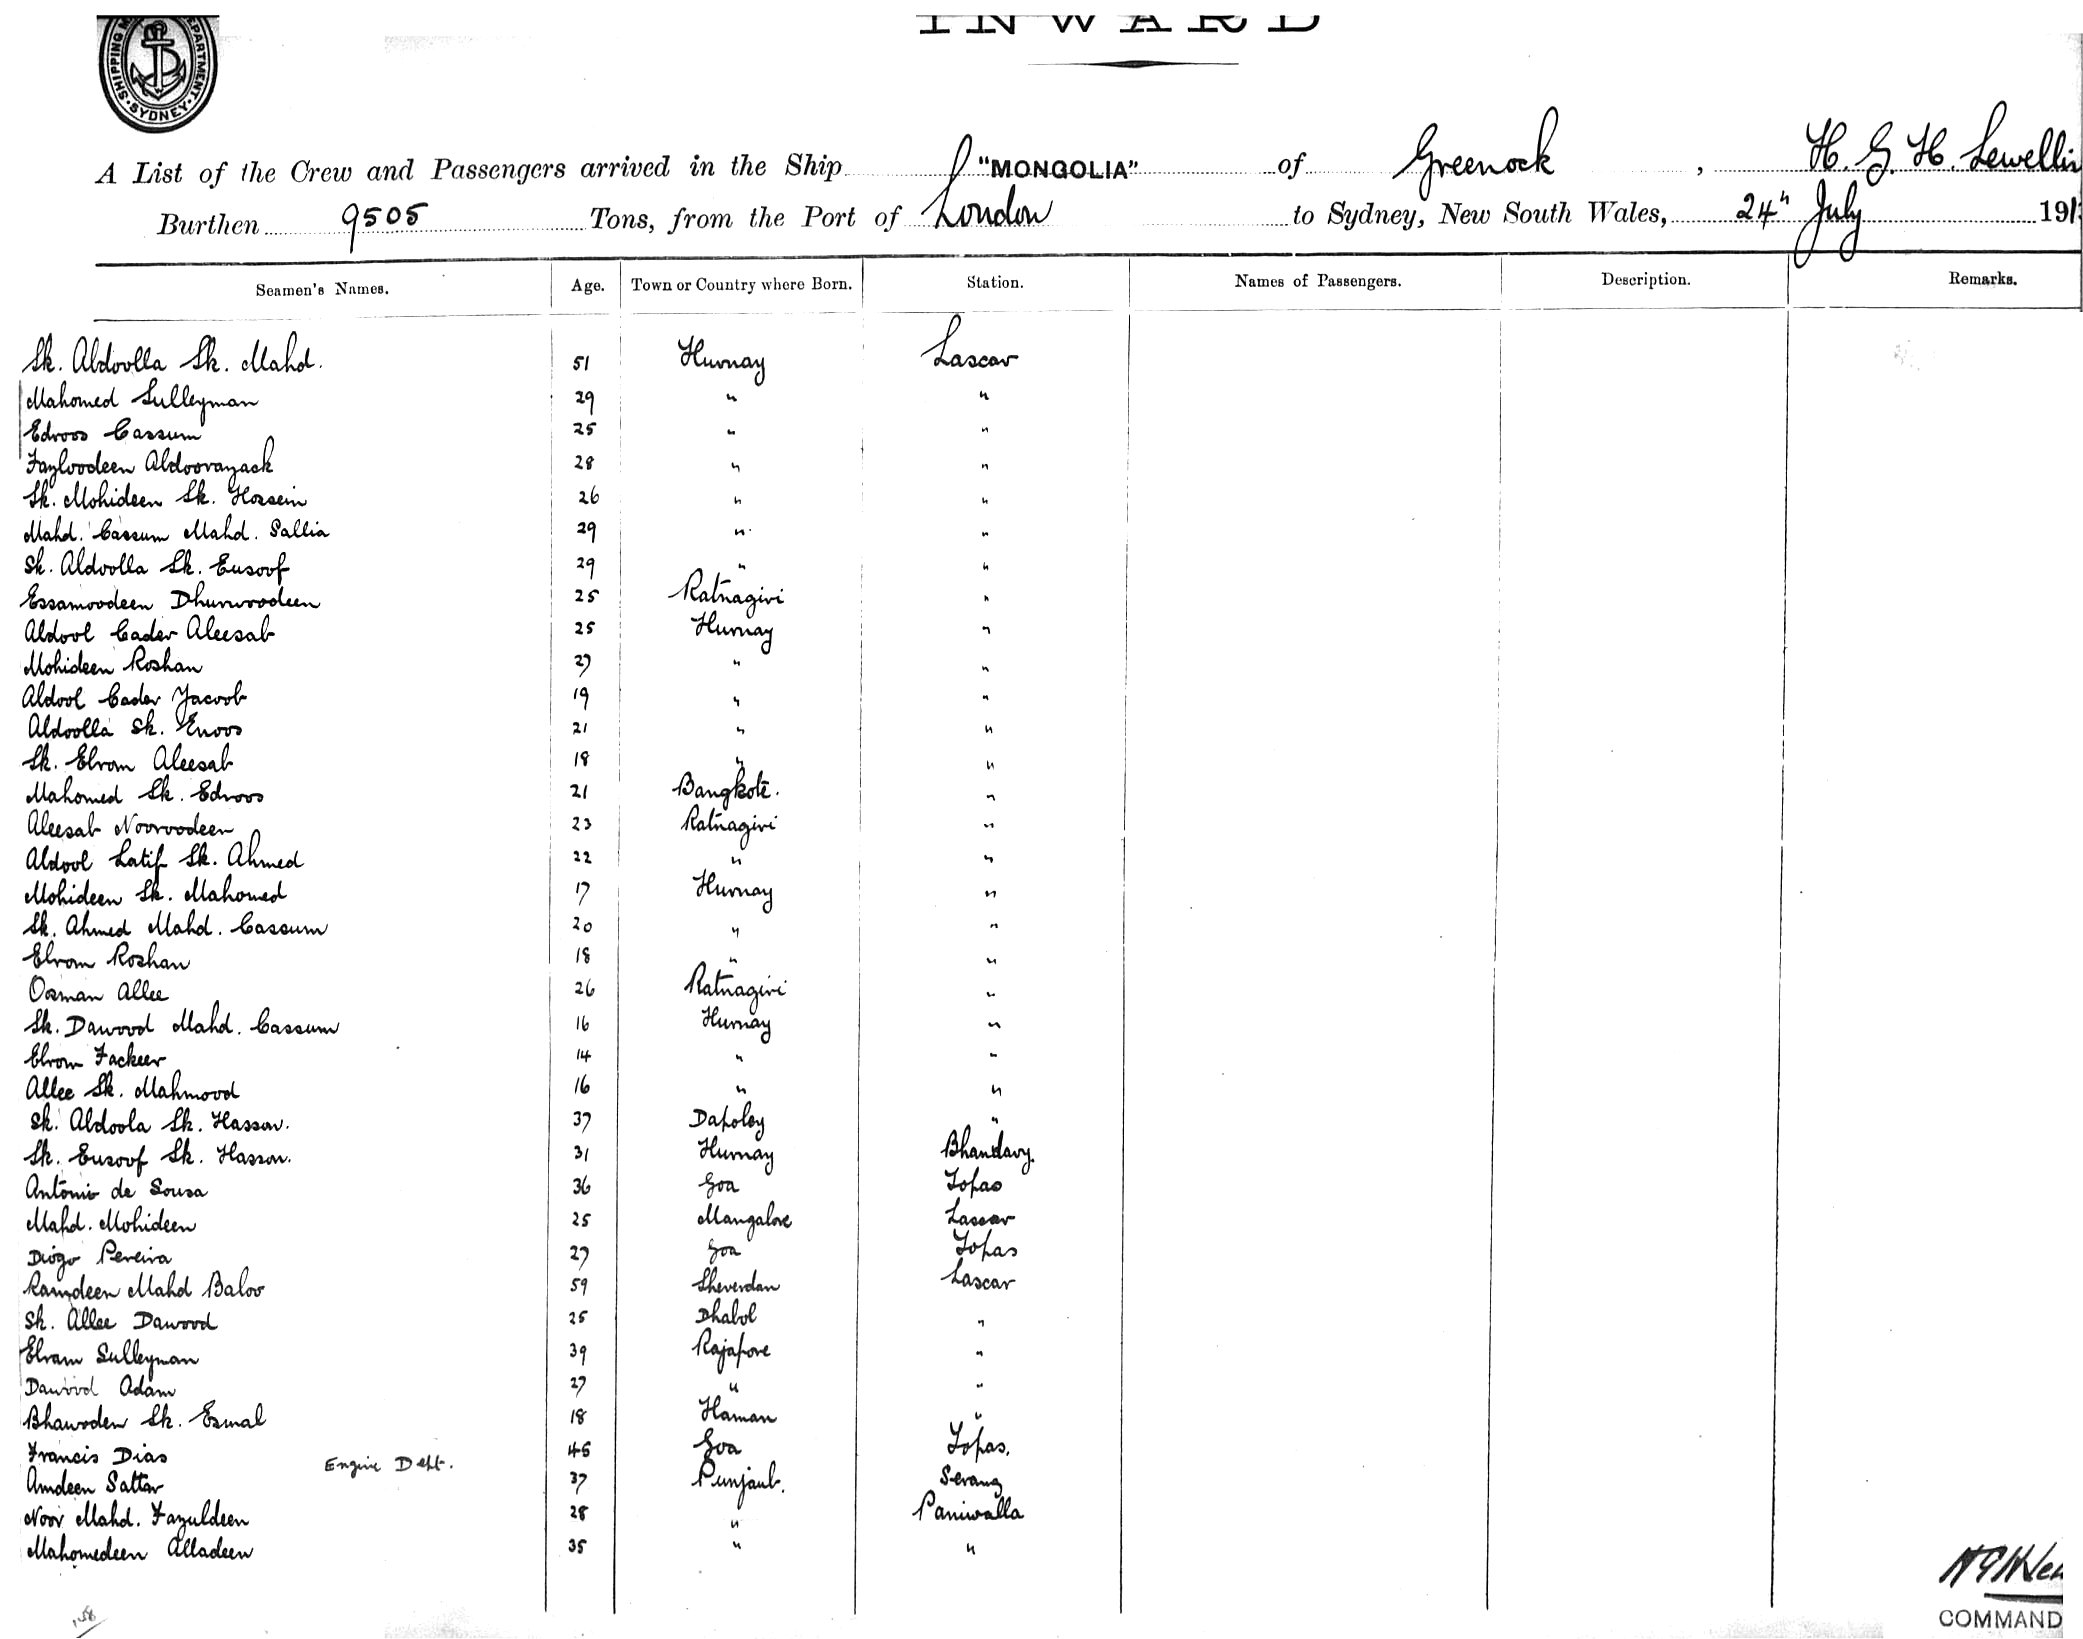 INWARD
SHIPPING DEPARTMENT SYDNEY
A List of the Crew and Passengers arrived in the Ship "MONGOLIA" of Greenock, H. G. H. Lewellin
Burthen 9505 Tons, from the Port of London to Sydney, New South Wales, 24" July 191
Seamen's Names. Age. Town or Country where Born. Station. Names of Passengers. Description. Remarks.
Sk. Abdoolla Sk. Mahd. 51 Hurnay Lascar
Mahomed Sulleyman 29 " "
Edroos Cassum 25 " "
Fazloodeen Abdoorazack 28 " "
Sk. Mohideen Sk. Hossein 26 " "
Mahd. Cassum Mahd. Sallia 29 " "
Sk. Abdoolla Sk. Eusoof 29 " "
Essamoodeen Dhurwoodeen 25 Ratnagiri "
Abdool Cader Aleesab 25 Hurnay "
Mohideen Roshan 27 " "
Abdool Cader Yacoob 19 " "
Abdoolla Sk. Enoos 21 " "
Sk. Ebram Aleesab 18 " "
Mahomed Sk. Edroos 21 Bangkote. "
Aleesab Nooroodeen 23 Ratnagiri "
Abdool Latif Sk. Ahmed 22 " "
Mohideen Sk. Mahomed 17 Hurnay "
Sk. Ahmed Mahd. Cassum 20 " "
Ebram Roshan 18 " "
Osman Allee 26 Ratnagiri "
Sk. Dawood Mahd. Cassum 16 Hurnay "
Ebram Fackeer 14 " "
Allee Sk. Mahmood 16 " "
Sk. Abdoola Sk. Hassan. 37 Dapoley "
Sk. Eusoof Sk. Hassan. 31 Hurnay Bhandary.
Antonio de Sousa 36 Goa Topas
Mahd. Mohideen 25 Mangalore Lascar
Diogo Pereira 27 Goa Topas
Kamdeen Mahd Baloo 59 Sheverdan Lascar
Sk. Allee Dawood 25 Dhabol "
Ebram Sulleyman 39 Rajapore "
Dawood Adam 27 " "
Bhawoden Sk. Esmal 18 Haman "
Francis Dias 45 Goa Topas.
Engine Dept.
Amdeen Sattar 37 Punjaub. Serang
Noor Mahd. Fazuldeen 28 " Paniwalla
Mahomedeen Alladeen 35 " "
COMMAND